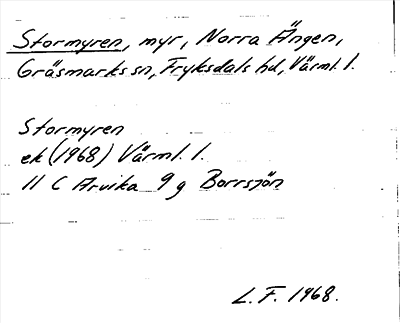 Stormyren, myr, Norra Ängen,
Gräsmarks sn, Fryksdals hd, Värml. l.
Stormyren
ek (1968) Värml. l.
11 C Arvika 9 g Borrsjön
L.F. 1968.